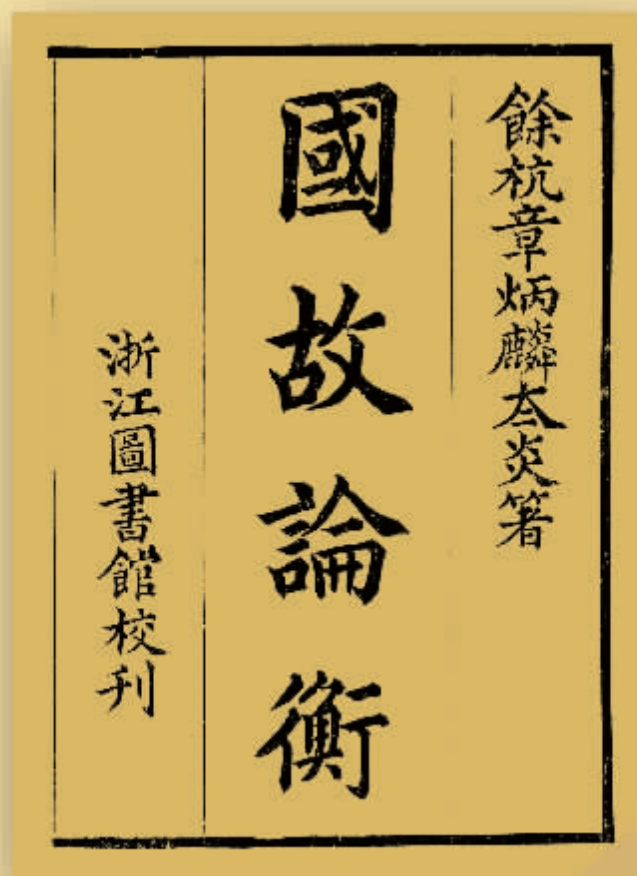 餘杭章炳麟夳炎箸
國故論衡
浙江圖書館校刊